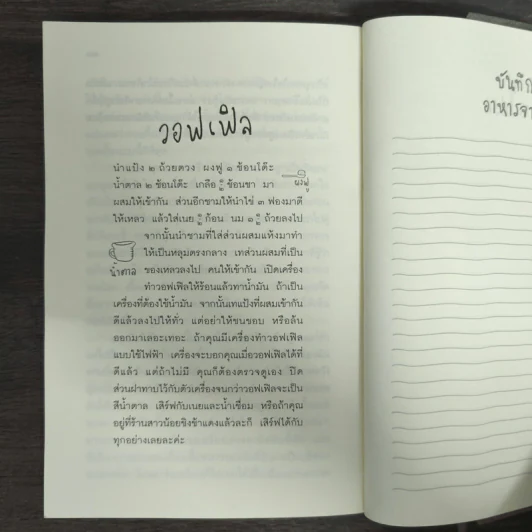 วอฟเฟิล
นำแป้ง ๒ ถ้วยตวง ผงฟู ๑ ช้อนโต๊ะ
น้ำตาล ๒ ช้อนโต๊ะ เกลือ ช้อนชา มา
ผงฟู
ผสมให้เข้ากัน ส่วนอีกชามให้นำไข่ ๓ ฟองมาตี
ให้เหลว แล้วใส่เนย ก้อน นม ๑ ถ้วยลงไป
จากนั้นนำชามที่ใส่ส่วนผสมแห้งมาทำ
ให้เป็นหลุมตรงกลาง เทส่วนผสมที่เป็น
ของเหลวลงไป คนให้เข้ากัน เปิดเครื่อง
น้ำตาล
ทำวอฟเฟิลให้ร้อนแล้วทาน้ำมัน ถ้าเป็น
เครื่องที่ต้องใช้น้ำมัน จากนั้นเทแป้งที่ผสมเข้ากัน
ดีแล้วลงไปให้ทั่ว แต่อย่าให้ชนขอบ หรือล้น
ออกมาเลอะเทอะ ถ้าคุณมีเครื่องทำวอฟเฟิล
แบบใช้ไฟฟ้า เครื่องจะบอกคุณเมื่อวอฟเฟิลได้ที่
ดีแล้ว แต่ถ้าไม่มี คุณก็ต้องตรวจดูเอง ปิด
ส่วนฝาทาบไว้กับตัวเครื่องจนกว่าวอฟเฟิลจะเป็น
สีน้ำตาล เสิร์ฟกับเนยและน้ำเชื่อม หรือถ้าคุณ
อยู่ที่ร้านสาวน้อยขิงข้าแดงแล้วละก็ เสิร์ฟได้กับ
ทุกอย่างเลยละค่ะ
บันทึก
อาหารจา